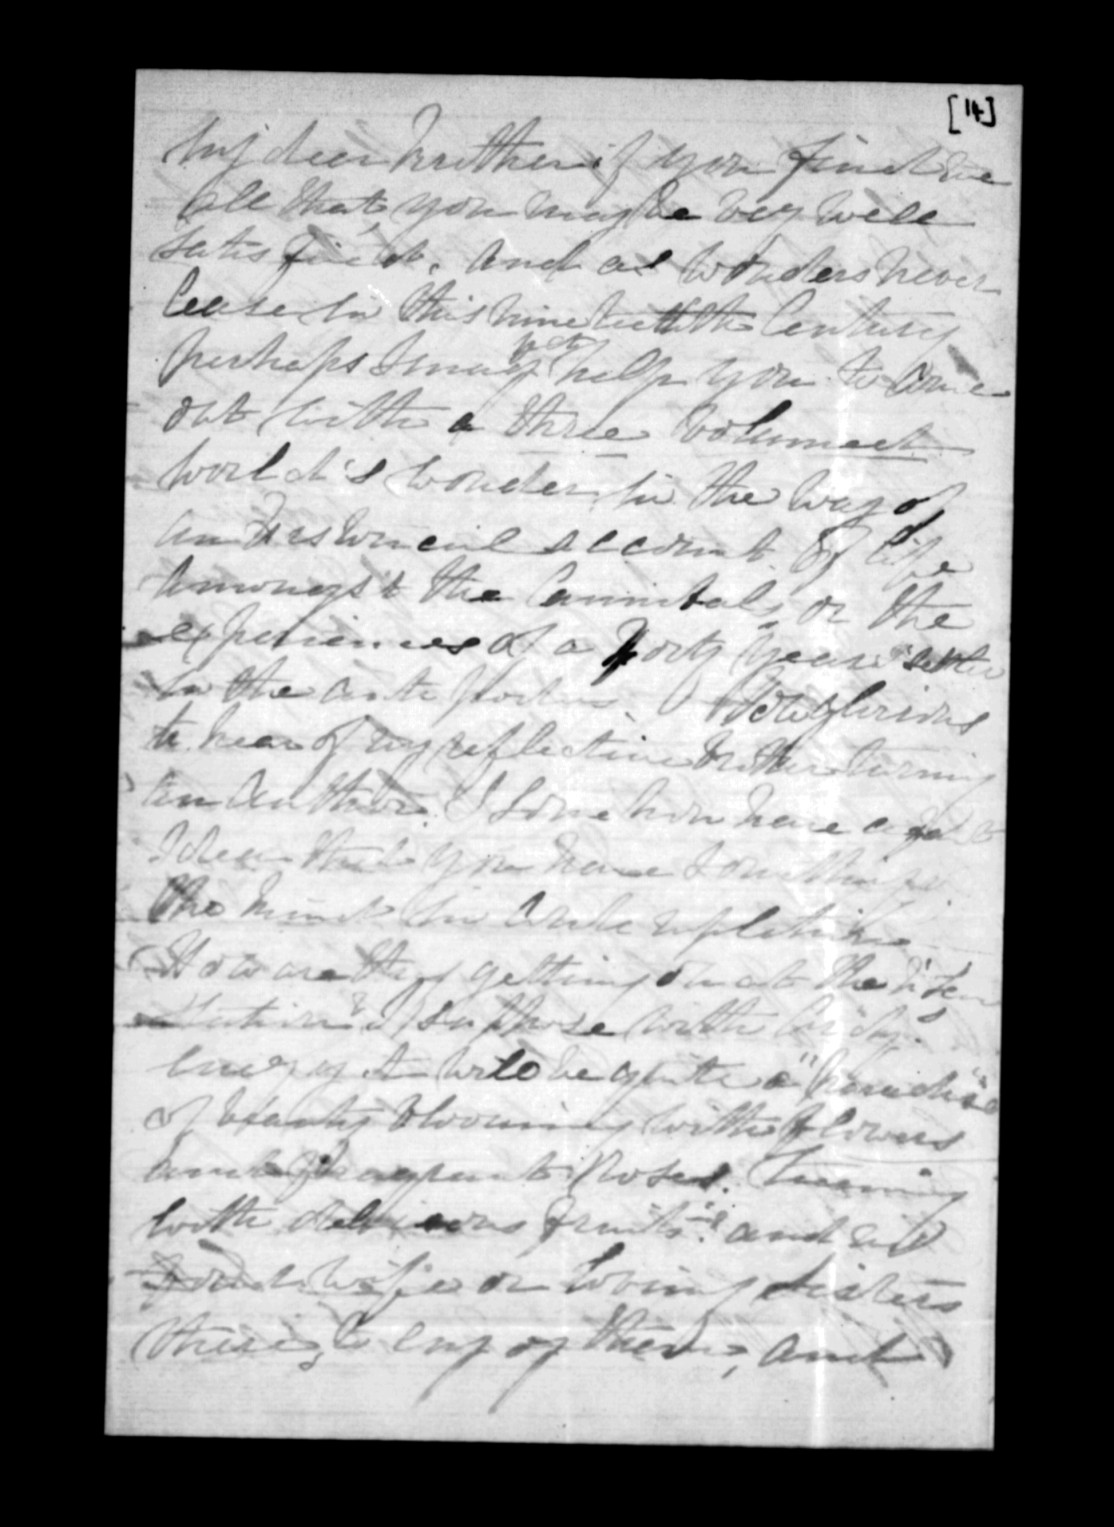 [14]
My dear brother if you find me
all that, you may be very well
satisfied. And as wonders never
cease in this nineteenth Century
perhaps I may yet help you to come
out with a three volumed
world's wonder in the way of
an Historical account of life
amongst the Cannibals, or the
experiences of a Forty Years settler
in the antipodes. How glorious
to hear of my reflective brother turning
an Author. I some how have a
Idea that you have something of
the kind in contemplation
How are they getting on at the
Station? I suppose with
energy it will be quite a "Paradise
of beauty blooming with flowers
and fragrant Roses. Teeming
with delicious fruits". and no
good wife or loving sisters
there, to enjoy them, and